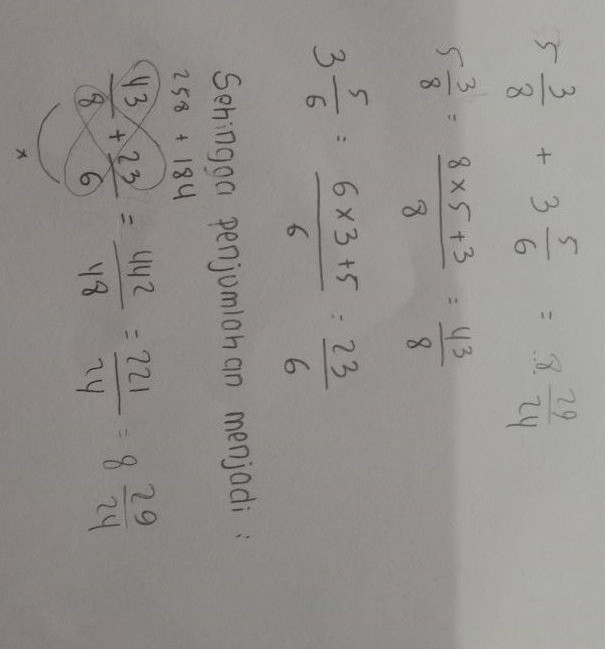 5 3/8 + 3 5/6 = 8 29/24
5 3/8 = 8 × 5 + 3 / 8 = 43/8
3 5/6 = 6 × 3 + 5 / 6 = 23/6
Sehingga penjumlahan menjadi :
258 + 184
43/8 + 23/6 = 442/48 = 221/24 = 8 29/24
×